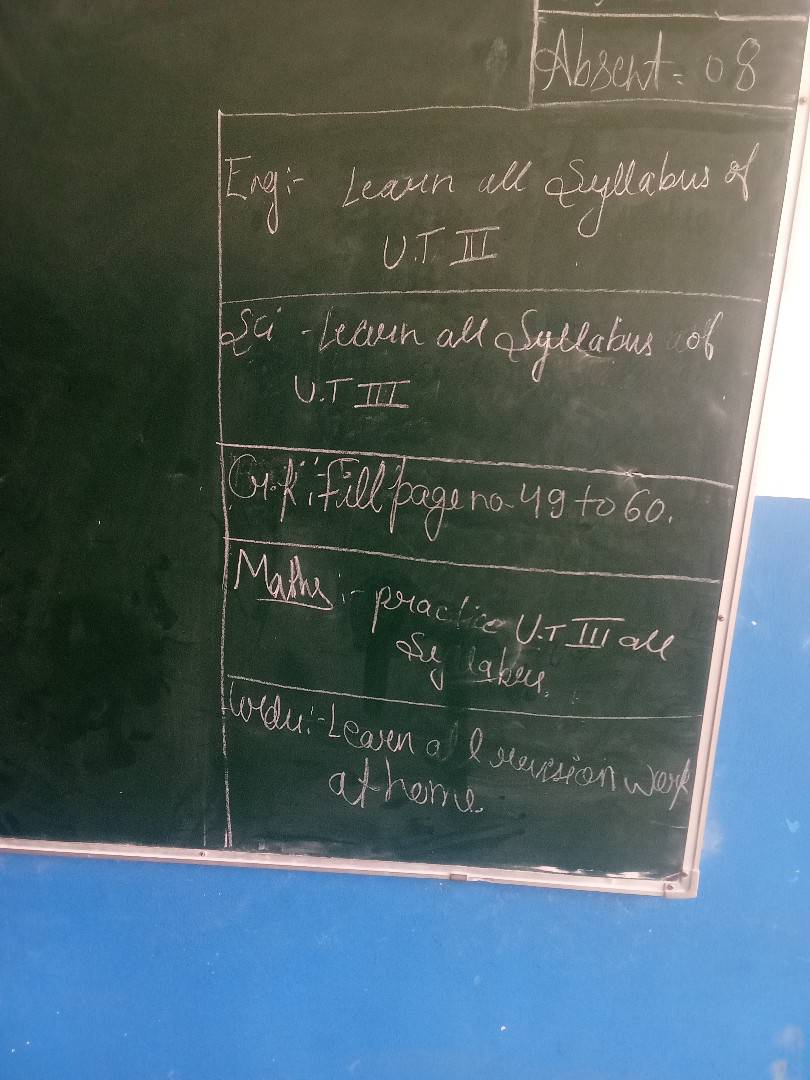 Absent = 08
Eng:- Learn all Syllabus of
U.T III
Sci - Learn all Syllabus of
U.T III
G.K:- Fill page no- 49 to 60.
Maths:- practice U.T III all
Syllabus.
Urdu:- Learn all revision work
at home